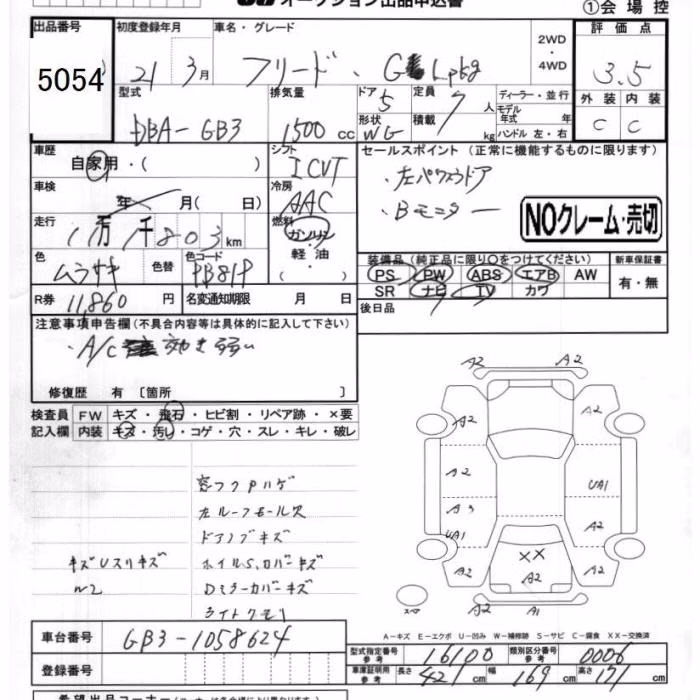 オークション出品申込書
①会場控
出品番号
5054
初度登録年月
21 3月
車名・グレード
フリード、G Lpkg
2WD・4WD
評価点
3.5
外装 内装
C C
型式
DBA-GB3
排気量
1500cc
ドア 5
形状 WG
定員 7人
積載 kg
ディーラー・並行
モデル年式 年式
ハンドル 左・右
車歴
自家用・( )
シフト
ICVT
車検
年 月 ( 日)
冷房
AAC
走行
1万1千803km
燃料
ガソリン・軽油
色
ムラサキ
色替
色コード
PB81P
R券 11,860円
名変通知期限 月 日
セールスポイント (正常に機能するものに限ります)
・左パワースライドドア
・Bモニター
NOクレーム・売切
装備品 (純正品に限り○をつけてください)
PS PW ABS エアB AW
SR ナビ TV カワ
新車保証書
有・無
後日品
注意事項申告欄 (不具合内容等は具体的に記入して下さい)
・A/C 効き弱い
修復歴 有 〔箇所 〕
検査員記入欄
FW キズ・飛石・ヒビ割・リペア跡・×要
内装 キズ・汚し・コゲ・穴・スレ・キレ・破レ
窓フクPハゲ
左ルーフモール欠
ドアノブキズ
キズUスリキズ
ホイルS,カバーキズ
Dミラーカバーキズ
ライトクモリ
A2 A2
A2 A2
A2 UA1
A3 A2
UA1
XX
A2 A2 A2
スペア
A2 A1
A-キズ E-エクボ U-凹み W-補修跡 S-サビ C-腐食 XX-交換済
車台番号
GB3-1058624
登録番号
型式指定番号 参考 16100
類別区分番号 参考 0006
車庫証明用 参考 長さ 421cm 幅 169cm 高さ 171cm
希望出品コーナー